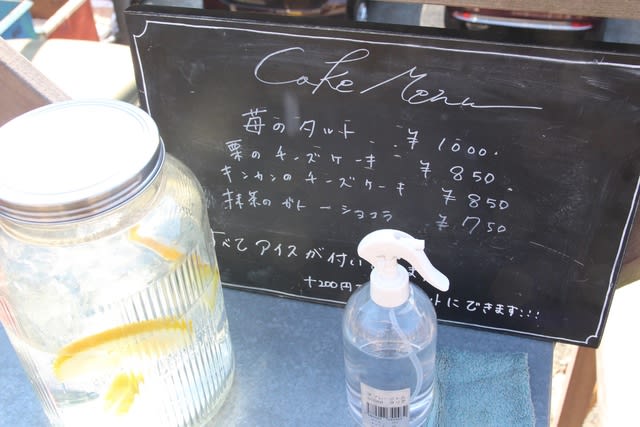 Cake Menu
苺のタルト ¥1000.
栗のチーズケーキ ¥850.
キンカンのチーズケーキ ¥850
抹茶のガトーショコラ ¥750
すべてアイスが付い
+200円 ットにできます!!!